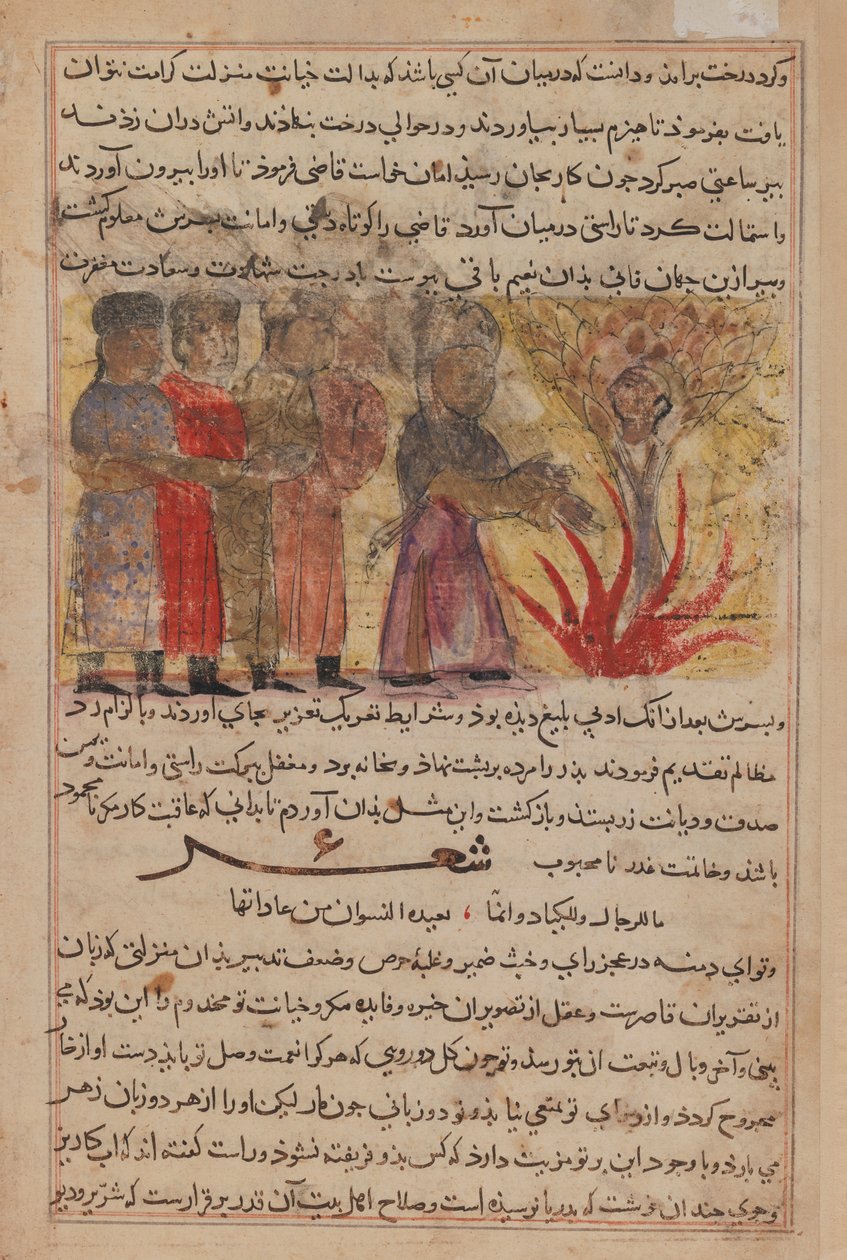 و کرد درخت برامذ و دانست که درمیان آن کسی باشذ که بدالت خیانت منزلت کرامت نتوان
یافت بفرموذ تا هیزم بسیار بیاوردند و در حوالی درخت بنهاذند و آتش دران زذند
پیر ساعتی صبر کرد جون کار بجان رسیذ امان خواست قاضی فرموذ تا او را بیرون آوردند
و استمالت کرد تا راستی درمیان آورد قاضی را کوتاه دستی و امانت معلوم کشت
و پیر ازین جهان فانی بذان نعیم باقی پیوست با درجت شهاذت و سعادت مغفرت
و پسرش بعد از انک ادبی بلیغ دیذه بوذ و شرایط تعریک و تعزیر بجای اوردند و بالزام رد
مظالم تقدیم فرمودند بذر را مرده بر بشت نهاذ و بخانه برد و مغفل ببرکت راستی و امانت و یمن
صدق و دیانت زر بستذ و باز کشت و این مثل بذان آوردم تا بدانی که عاقبت کار مکر نا محمود
باشذ و خاتمت غدر نا محبوب
شعر
ما للرجال وللکیاد وانما یعیده النسوان من عاداتها
و تو ای دمنه در عجز رای و خبث ضمیر و غلبهٔ حرص و ضعف تدبیر بذان منزلتی که زبان
از تقریر ان قاصرست و عقل از تصویر ان خیره و فایده مکر و خیانت تو مخدوم را این بوذ که می
بینی و آخر وبال و تبعت ان بتو رسذ و تو جون کل دورویی که هر کرا نعمت وصل تو باید دست او از خار
مجروح کردذ و از تو تمتعی نیابذ و تو دو زبانی جون مار لیکن او را از هر دو زبان زهر
می بارذ و با وجود این بر تو مزیت دارد که کس بذو فریفته نشوذ و راست کفته اند که اب کاریز
و جوی جندان خوشست که بدریا نرسیذه است و صلاح اهل بیت آن قدر بر قرارست که شریر و دیو